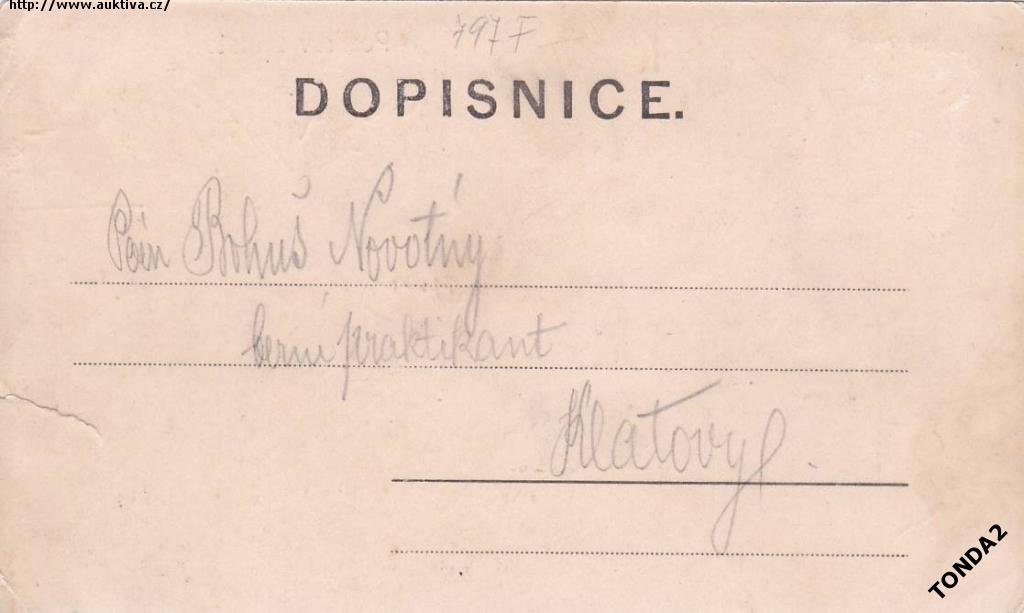 http://www.auktiva.cz/
797 F
DOPISNICE.
Pán Bohuš Novotný
berní praktikant
Klatovy.
TONDA2